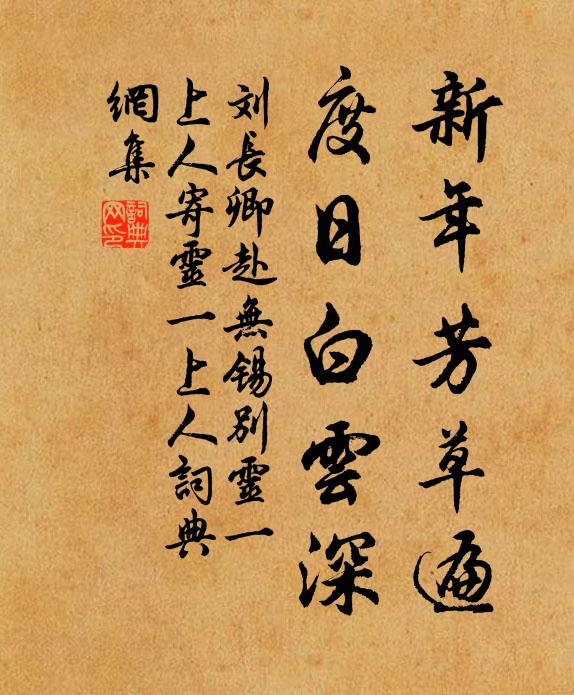 新年芳草遍
度日白雲深
刘長卿赴無锡別靈一
上人寄靈一上人詞典
網集
詞典网印